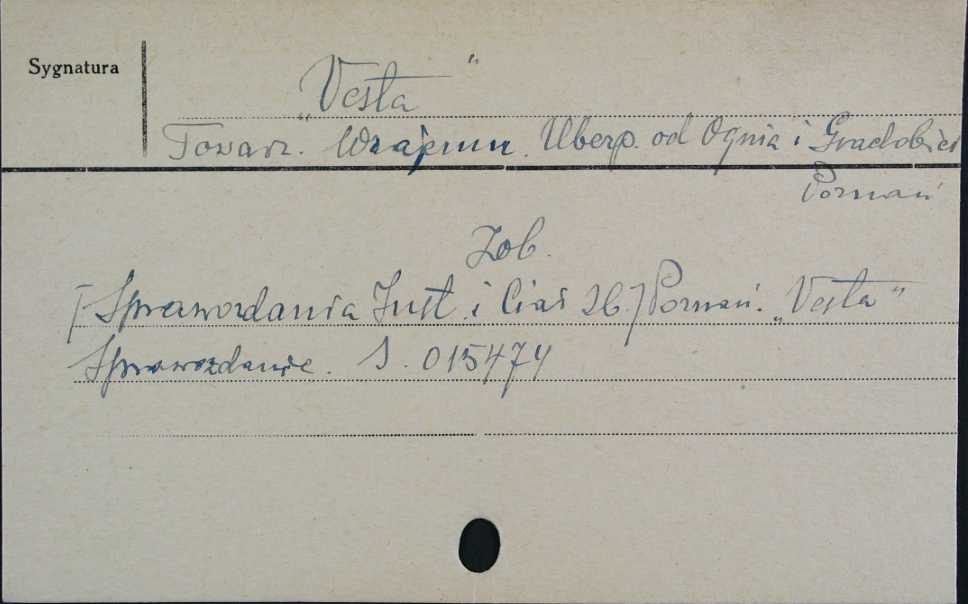 Sygnatura
„Vesta"
Towarz. Wzajemn. Ubezp. od Ognia i Gradobicia
Poznań
Zob.
[Sprawozdania Inst. i Ciał Zb.] Poznań. „Vesta"
Sprawozdanie. S. 015474